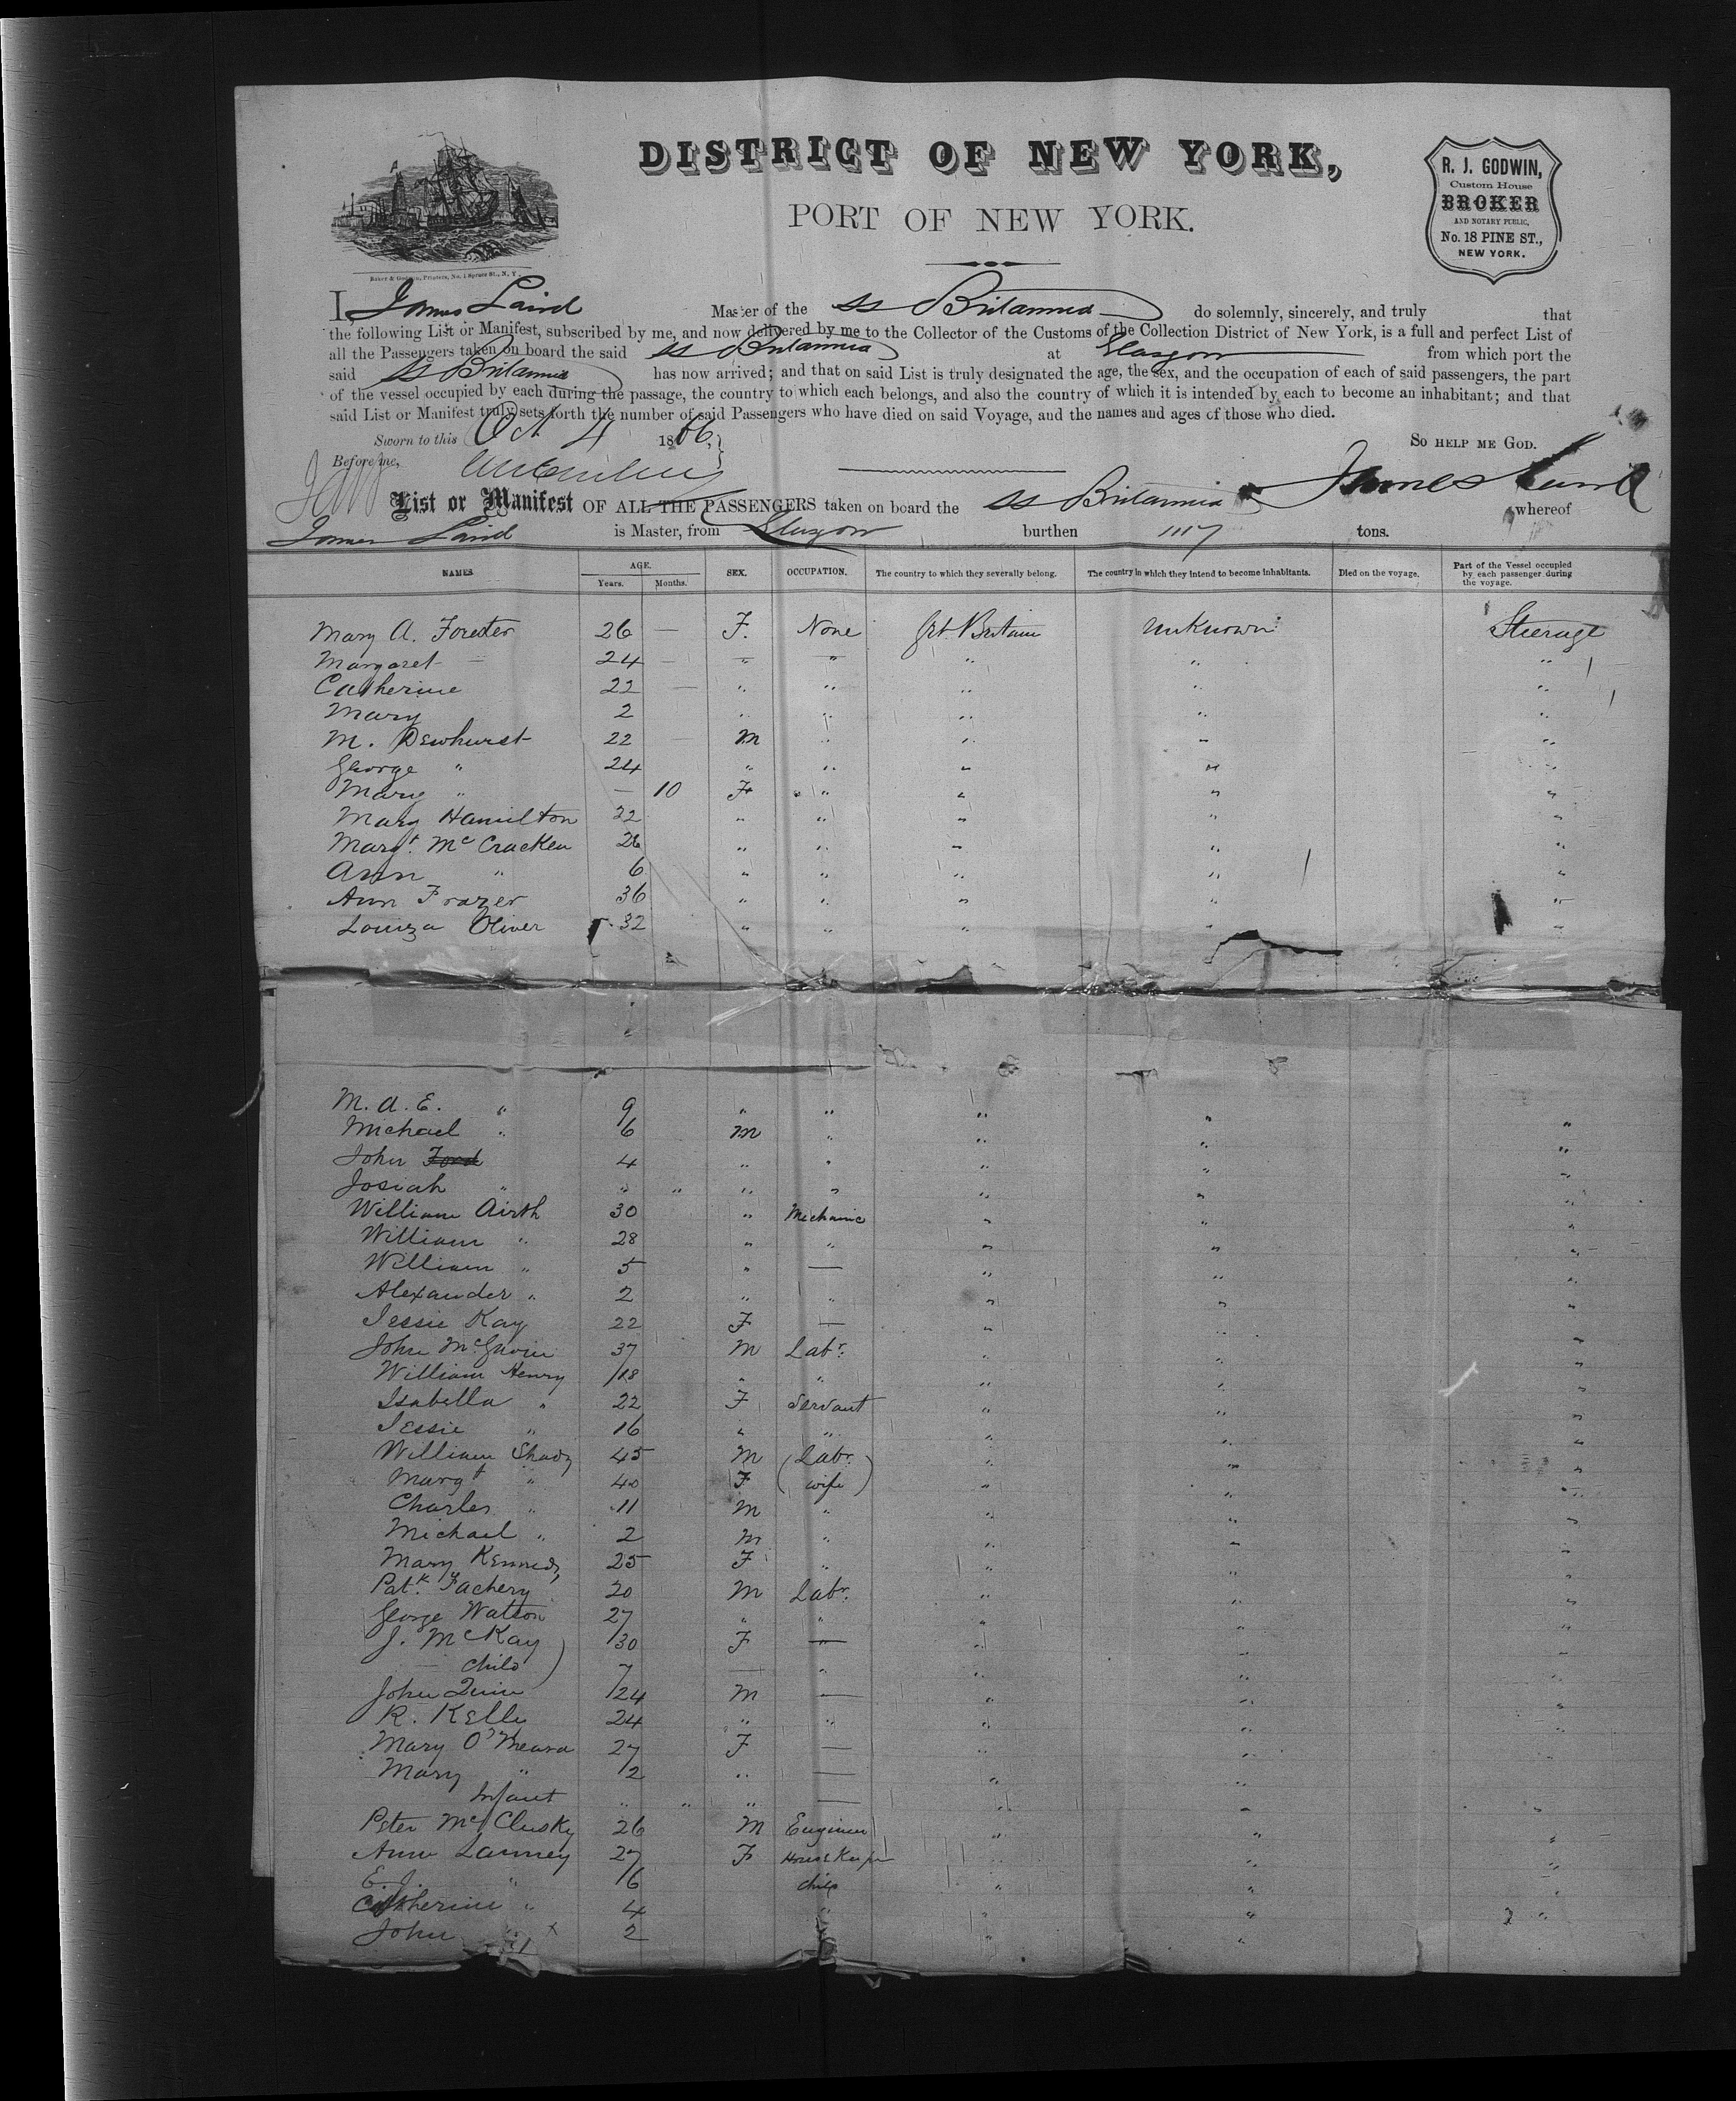 DISTRICT OF NEW YORK,
PORT OF NEW YORK.
R. J. GODWIN,
Custom House
BROKER
AND NOTARY PUBLIC,
No. 18 PINE ST.,
NEW YORK.
Baker & Godwin, Printers, No. 1 Spruce St., N. Y.
I, James Laird Master of the SS Britannia do solemnly, sincerely, and truly that
the following List or Manifest, subscribed by me, and now delivered by me to the Collector of the Customs of the Collection District of New York, is a full and perfect List of
all the Passengers taken on board the said SS Britannia at Glasgow from which port the
said SS Britannia has now arrived; and that on said List is truly designated the age, the sex, and the occupation of each of said passengers, the part
of the vessel occupied by each during the passage, the country to which each belongs, and also the country of which it is intended by each to become an inhabitant; and that
said List or Manifest truly sets forth the number of said Passengers who have died on said Voyage, and the names and ages of those who died.
Sworn to this Oct 4 1866, So HELP ME GOD.
Before me,
James Laird
List or Manifest OF ALL THE PASSENGERS taken on board the SS Britannia whereof
James Laird is Master, from Glasgow burthen 1117 tons.
NAMES AGE. Years. Months. SEX. OCCUPATION. The country to which they severally belong. The country in which they intend to become inhabitants. Died on the voyage. Part of the Vessel occupied by each passenger during the voyage.
Mary A. Forester 26 — F. None Grt Britain Unknown Steerage
Margaret — 24 — " " " " "
Catherine 22 — " " " " "
Mary 2 " " " " "
M. Dewhurst 22 — M " " " "
George " 24 " " " " "
Mary " — 10 F " " " "
Mary Hamilton 22 " " " " "
Margt. McCracken 26 " " " " "
Ann " 6 " " " " "
Ann Frazer 36 " " " " "
Louiza Oliver 32 " " " " "
M. A. E. " 9 " " " " "
Michael " 6 M " " " "
John 4 " " " " "
Josiah " " " " " " " "
William Airth 30 " Mechanic " " "
William " 28 " " " " "
William " 5 " — " " "
Alexander " 2 " " " " "
Jessie Kay 22 F — " " "
John 37 M Labr. " " "
William Henry 18 " " " " "
Isabella " 22 F Servant " " "
Jessie " 16 " " " " "
William Shady 45 M (Labr.) " " "
Margt " 40 F (wife) " " "
Charles " 11 M " " " "
Michael " 2 M " " " "
Mary Kennedy 25 F " " " "
Patk. Fachery 20 M Labr. " " "
George Watson 27 " " " " "
J. McKay 30 F — " " "
— child 7 — " " " "
John Quin 24 M — " " "
R. Kelly 24 " " " " "
Mary O'Meara 27 F — " " "
Mary " 2 " — " " "
Infant " " " — " " "
Peter McClusky 26 M Engineer " " "
Ann Lanney 27 F House Keeper " " "
E. J. " 6 child " " "
Catherine " 4 " " " "
John " 2 " "